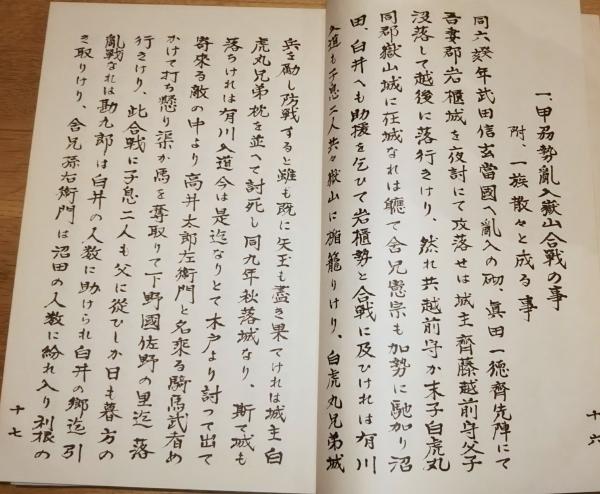 一、甲州勢亂入嶽山合戰の事
附、一族散々と成る事
同六癸年武田信玄當國へ亂入の砌、眞田一德齊先陣にて
吾妻郡岩櫃城を夜討にて攻落せは城主齊藤越前守父子
沒落して越後に落行きけり、然れ共越前守か末子白虎丸
同郡嶽山城に在城なれは軈て舍兄憲宗も加勢に馳加り沼
田、白井へも助援を乞ひて岩櫃勢と合戰に及ひけれは有川
入道も子息二人共々嶽山に楯籠りけり、白虎丸兄弟城
十六
兵を勵し防戰すると雖も既に矢玉も盡き果てけれは城主白
虎丸兄弟枕を並へて討死し同九年秋落城なり、斯て城も
落ちけれは有川入道今は是迄なりとて木戶より討つて出て
寄來る敵の中より高井太郎左衛門と名乘る騎馬武者め
かけて打ち懸り渠か馬を奪取りて下野國佐野の里迄落
行きけり、此合戰に子息二人も父に從ひしか日も暮方の
亂戰なれは勘九郎は白井の人数に助けられ白井の鄉迄引
き取りけり、舍兄孫右衛門は沼田の人数に紛れ入り利根の
十七